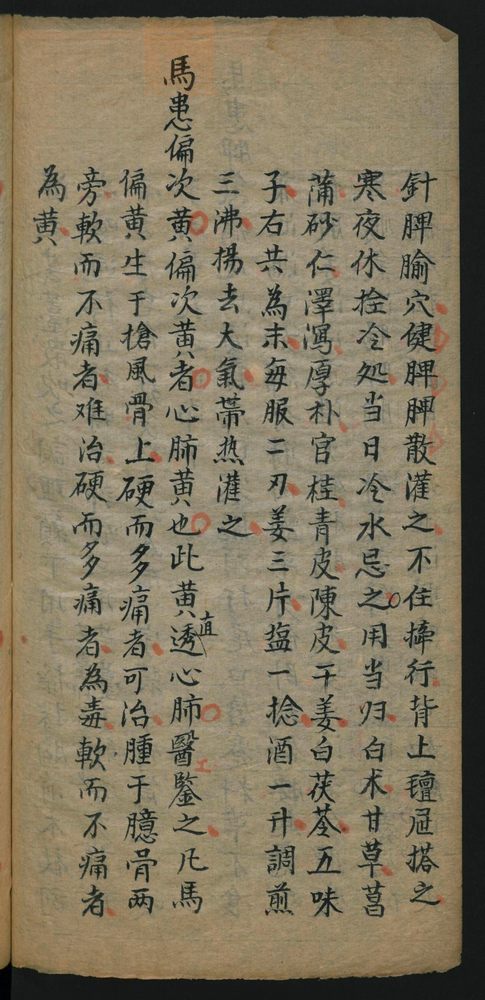 針脾腧穴健脾脾散灌之不住摔行背上氊屉搭之
寒夜休拴冷处当日冷水忌之用当归白术甘草菖
蒲砂仁澤瀉厚朴官桂青皮陳皮干姜白茯苓五味
子右共為末每服二刃姜三片塩一捻酒一升調煎
三沸揚去大氣帶热灌之
馬患偏次黄偏次黄者心肺黄也此黄直透心肺醫鑒之凡馬
偏黄生于搶風骨上硬而多痛者可治腫于臆骨两
旁軟而不痛者难治硬而多痛者為毒軟而不痛者
為黄